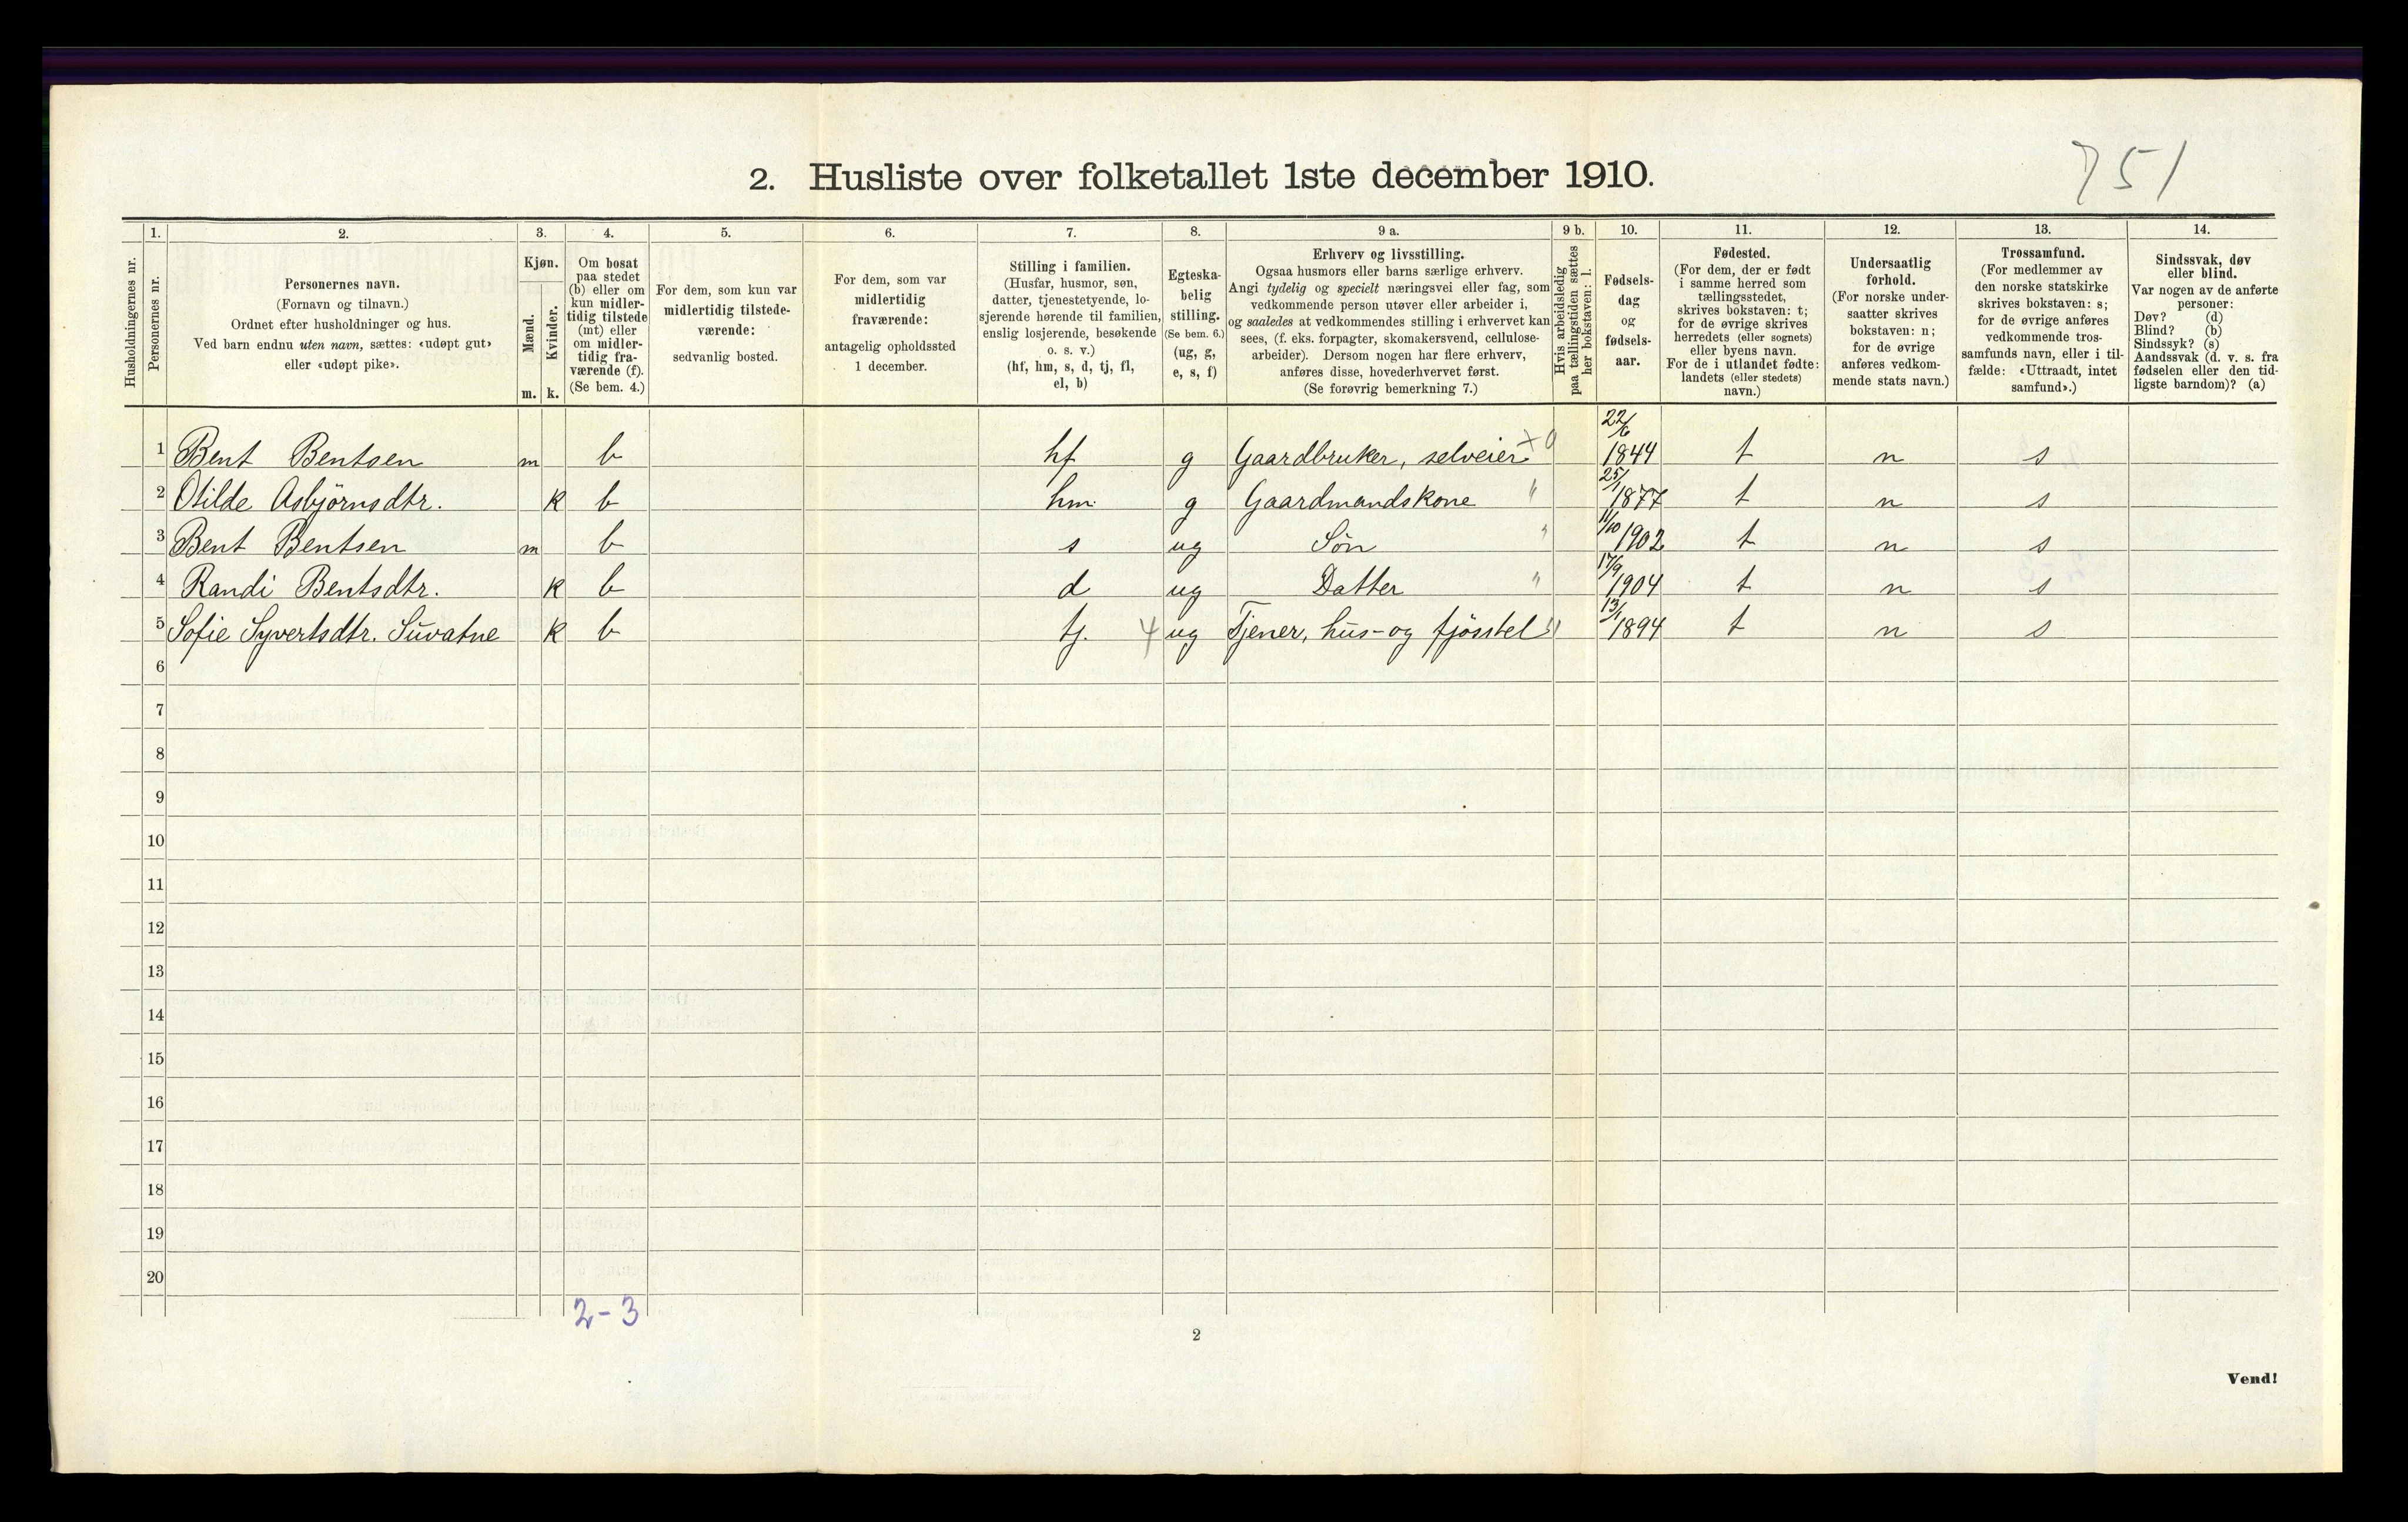 2. Husliste over folketallet 1ste december 1910.
751
Husholdningernes nr.
1.
Personernes nr.
2.
Personernes navn.
(Fornavn og tilnavn.)
Ordnet efter husholdninger og hus.
Ved barn endnu uten navn, sættes: «udøpt gut»
eller «udøpt pike».
3.
Kjøn.
Mænd.
Kvinder.
m. k.
4.
Om bosat
paa stedet
(b) eller om
kun midler-
tidig tilstede
(mt) eller
om midler-
tidig fra-
værende (f).
(Se bem. 4.)
5.
For dem, som kun var
midlertidig tilstede-
værende:
sedvanlig bosted.
6.
For dem, som var
midlertidig
fraværende:
antagelig opholdssted
1 december.
7.
Stilling i familien.
(Husfar, husmor, søn,
datter, tjenestetyende, lo-
sjerende hørende til familien,
enslig losjerende, besøkende
o. s. v.)
(hf, hm, s, d, tj, fl,
el, b)
8.
Egteska-
belig
stilling.
(Se bem. 6.)
(ug, g,
e, s, f)
9 a.
Erhverv og livsstilling.
Ogsaa husmors eller barns særlige erhverv.
Angi tydelig og specielt næringsvei eller fag, som
vedkommende person utøver eller arbeider i,
og saaledes at vedkommendes stilling i erhvervet kan
sees, (f. eks. forpagter, skomakersvend, cellulose-
arbeider). Dersom nogen har flere erhverv,
anføres disse, hovederhvervet først.
(Se forøvrig bemerkning 7.)
9 b.
Hvis arbeidsledig
paa tællingstiden sættes
her bokstaven: l.
10.
Fødsels-
dag
og
fødsels-
aar.
11.
Fødested.
(For dem, der er født
i samme herred som
tællingsstedet,
skrives bokstaven: t;
for de øvrige skrives
herredets (eller sognets)
eller byens navn.
For de i utlandet fødte:
landets (eller stedets)
navn.)
12.
Undersaatlig
forhold.
(For norske under-
saatter skrives
bokstaven: n;
for de øvrige
anføres vedkom-
mende stats navn.)
13.
Trossamfund.
(For medlemmer av
den norske statskirke
skrives bokstaven: s;
for de øvrige anføres
vedkommende tros-
samfunds navn, eller i til-
fælde: «Uttraadt, intet
samfund».)
14.
Sindssvak, døv
eller blind.
Var nogen av de anførte
personer:
Døv? (d)
Blind? (b)
Sindssyk? (s)
Aandssvak (d. v. s. fra
fødselen eller den tid-
ligste barndom)? (a)
1 Bent Bentsen m b hf g Gaardbruker, selveier 22/6 1844 t n s
2 Otilde Asbjörnsdtr. k b hm. g Gaardmandskone " 25/1 1877 t n s
3 Bent Bentsen m b s ug Sön " 11/10 1902 t n s
4 Randi Bentsdtr. k b d ug Datter " 17/9 1904 t n s
5 Sofie Syvertsdtr. Suvatne k b tj. 4 ug Tjener, hus- og fjösstel " 13/1 1894 t n s
6
7
8
9
10
11
12
13
14
15
16
17
18
19
20
2-3
2
Vend!